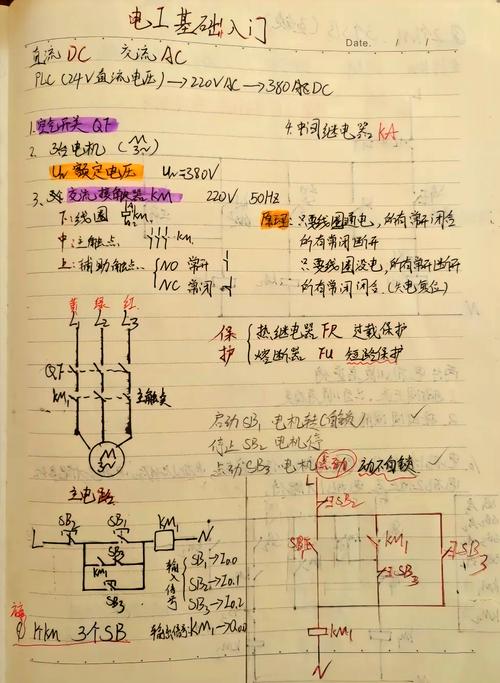 电工基础入门
Date. / /
直流 DC 交流 AC
PLC (24V直流电压)→220VAC→380 DC
1.空气开关 QF
4.中间继电器 KA
2. 电机 ( M 3~ )
UN 额定电压 UN=380V
3. 交流接触器KM 220V 50HZ
下:线圈 KM1
中:主触点 KM1
上:辅助触点 NO 常开
NC 常闭
原理:只要线圈通电,所有常开闭合
所有常闭断开
只要线圈没电,所有常开断开
所有常闭闭合.(失电复位)
黄 绿 红
L1 L2 L3
QF
KM1 主触点
M 3~
主电路
保护 热继电器 FR 过载保护
熔断器 FU 短路保护
启动SB1 电机转(自锁)
停止SB2 电机停
点动SB3 电机 点动 动不自锁
L SB2 SB1 KM1 N
SB3
KM1
SB3
输入信号 SB1→I0.0
SB2→I0.1
SB3→I0.2
输出信号:KM1→Q0.0
3个SB
L
SB2
SB1 KM1 SB3
SB3
KM1
N